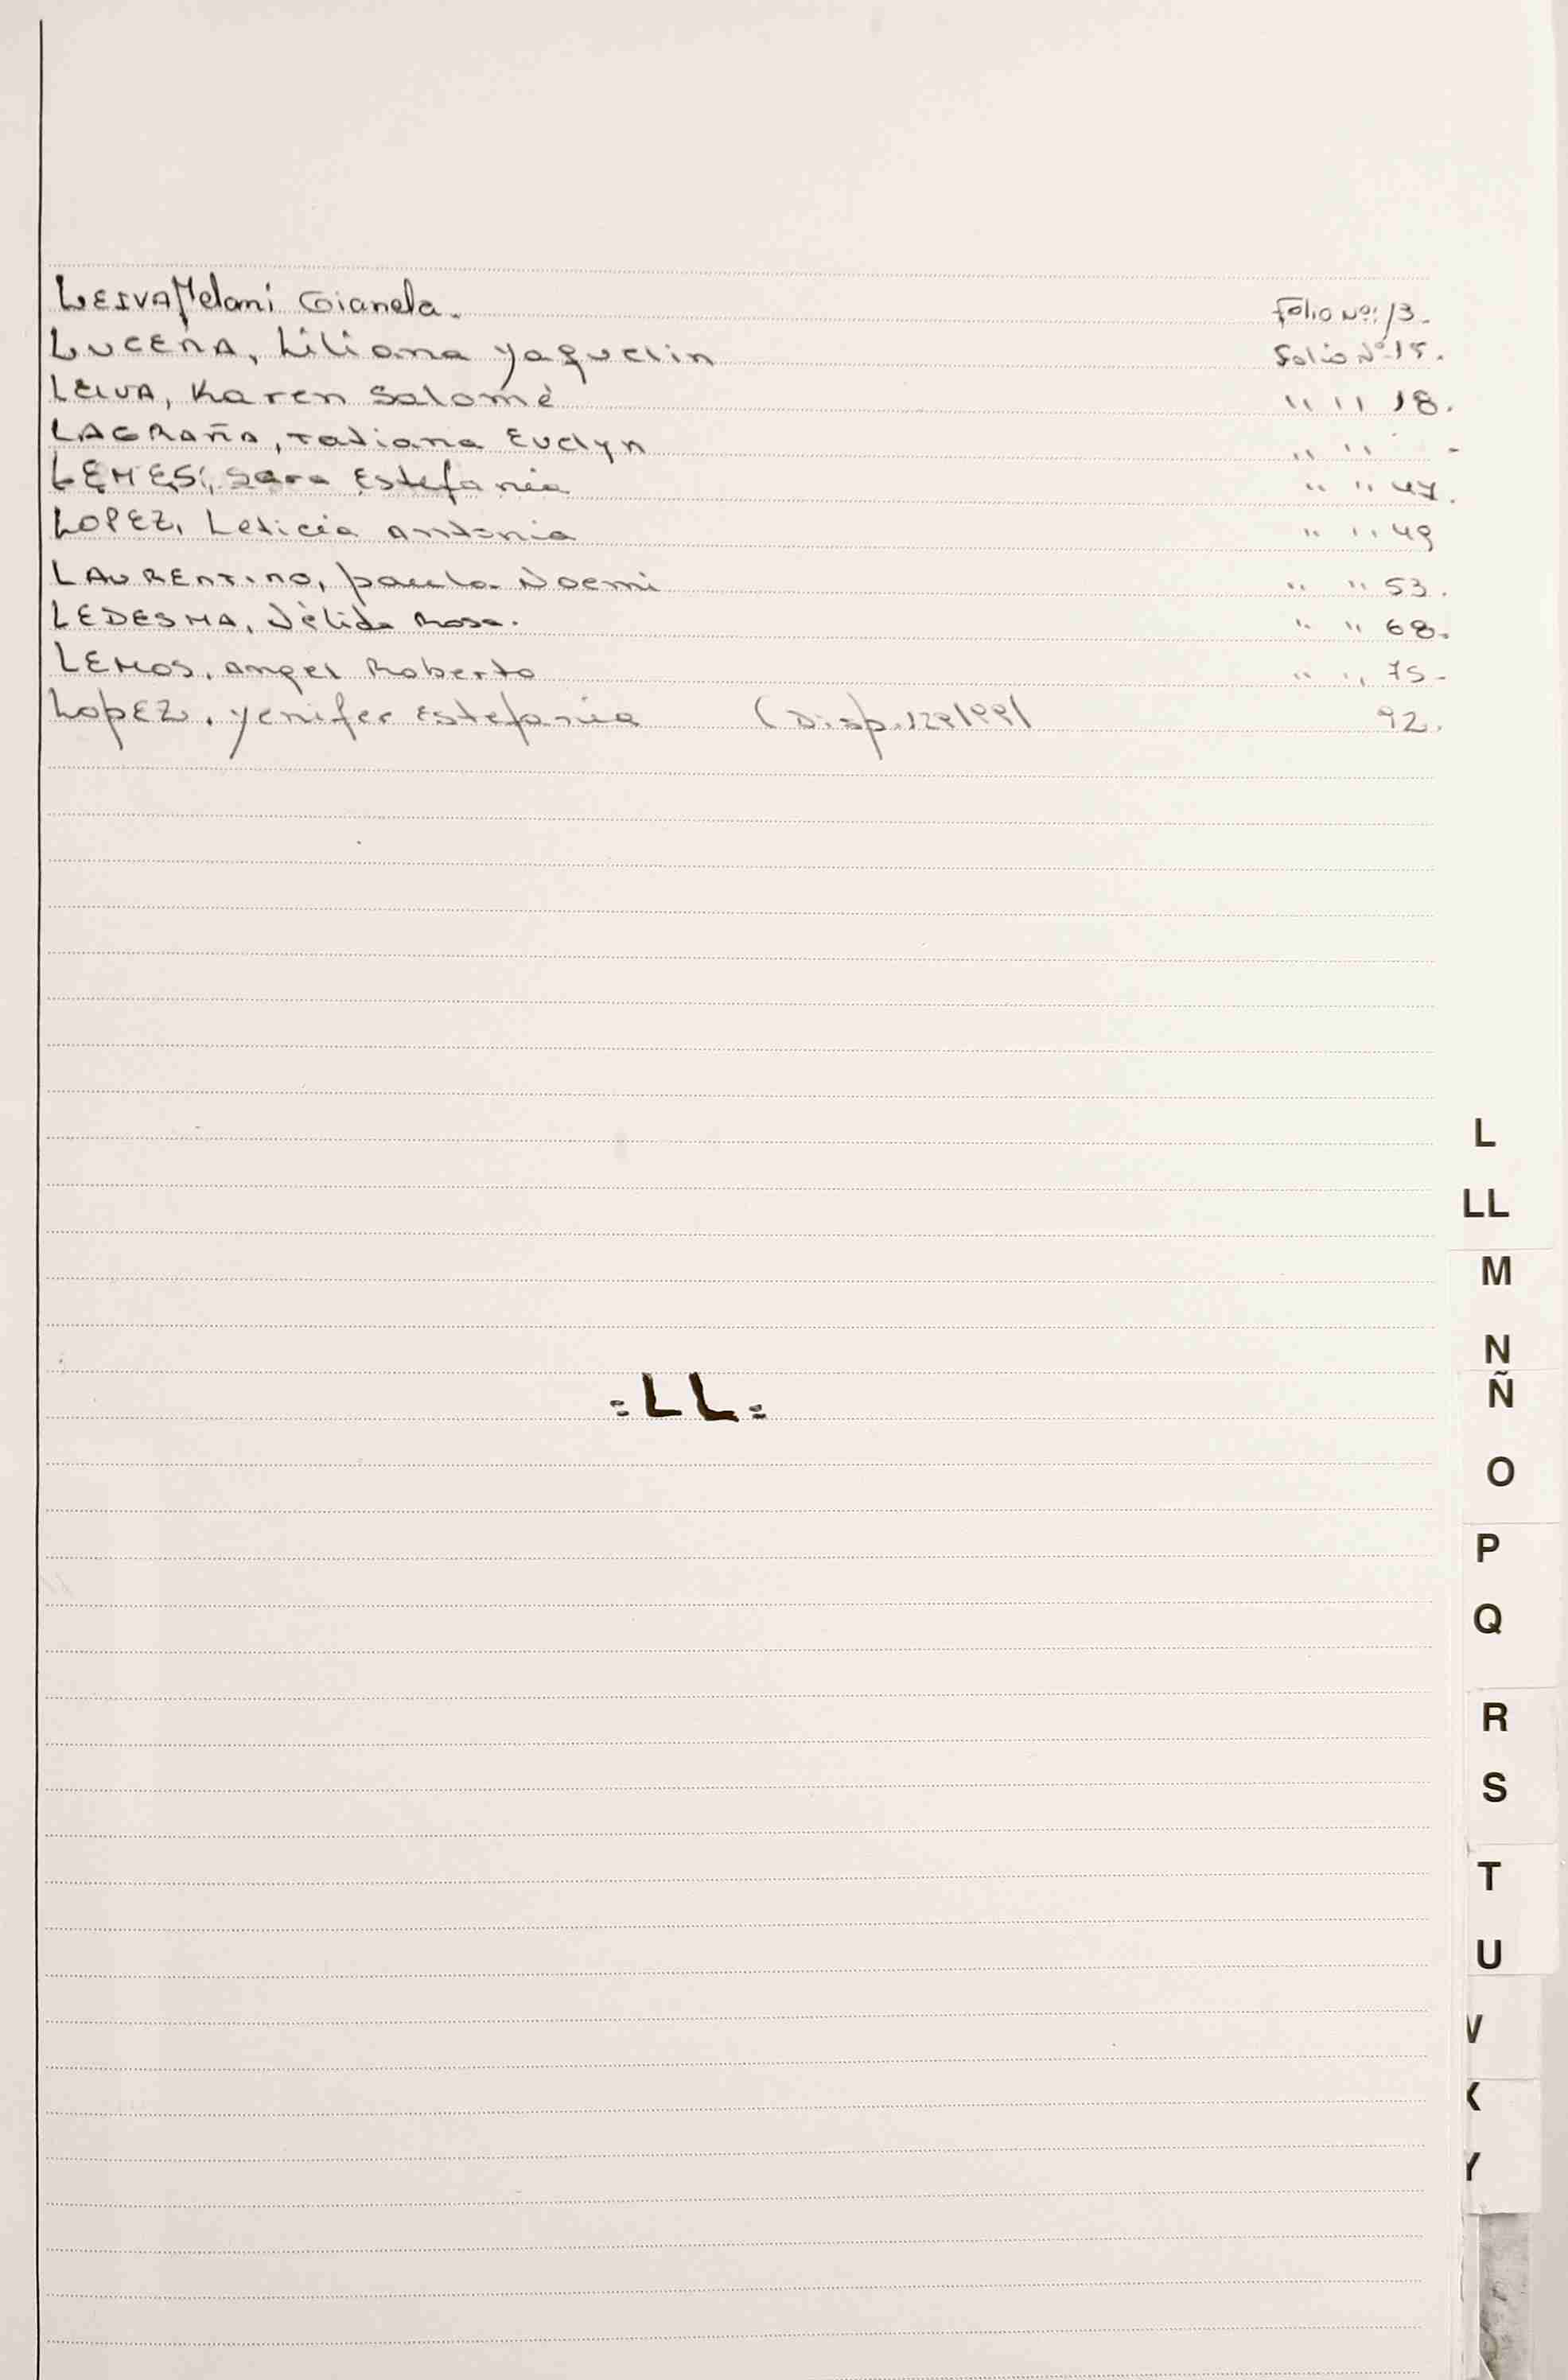 LEIVA Melani Gianela. Folio Nº: 13.
LUCENA, Liliana Yaquelin Folio Nº 15.
LEIVA, Karen Salomé " " 18.
LAGRAÑA, Tatiana Evelyn " " -
LEMES, Sara Estefania " " 47.
LOPEZ, Leticia Antonia " " 49
LAURENTINO, paula Noemi " " 53.
LEDESMA, Nélida Rosa. " " 68.
LEMOS, Angel Roberto " " 75-
LopEZ, yenifer Estefania (Disp. 92.
L
LL
M
N
Ñ
=LL=
O
P
Q
R
S
T
U
V
X
Y